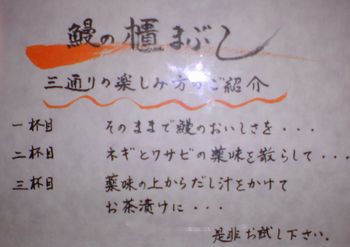 鰻の櫃まぶし
三通りの楽しみ方のご紹介
一杯目 そのままで鰻のおいしさを・・・
二杯目 ネギとワサビの薬味を散らして・・・
三杯目 薬味の上からだし汁をかけて
お茶漬けに・・・
是非お試し下さい。